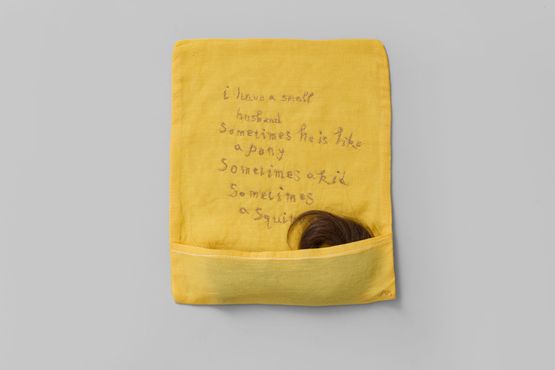 i have a small
husband
Sometimes he is like
a pony
Sometimes a kid
Sometimes
a squir